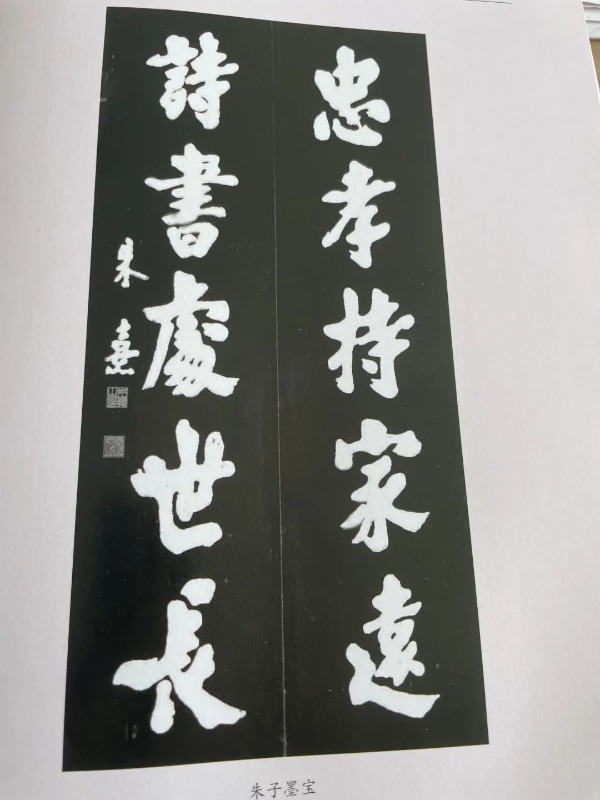 忠孝持家遠
詩書處世長
朱熹
朱子墨宝